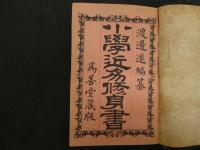 渡邊進編纂
小學近易修身書
為善堂藏版